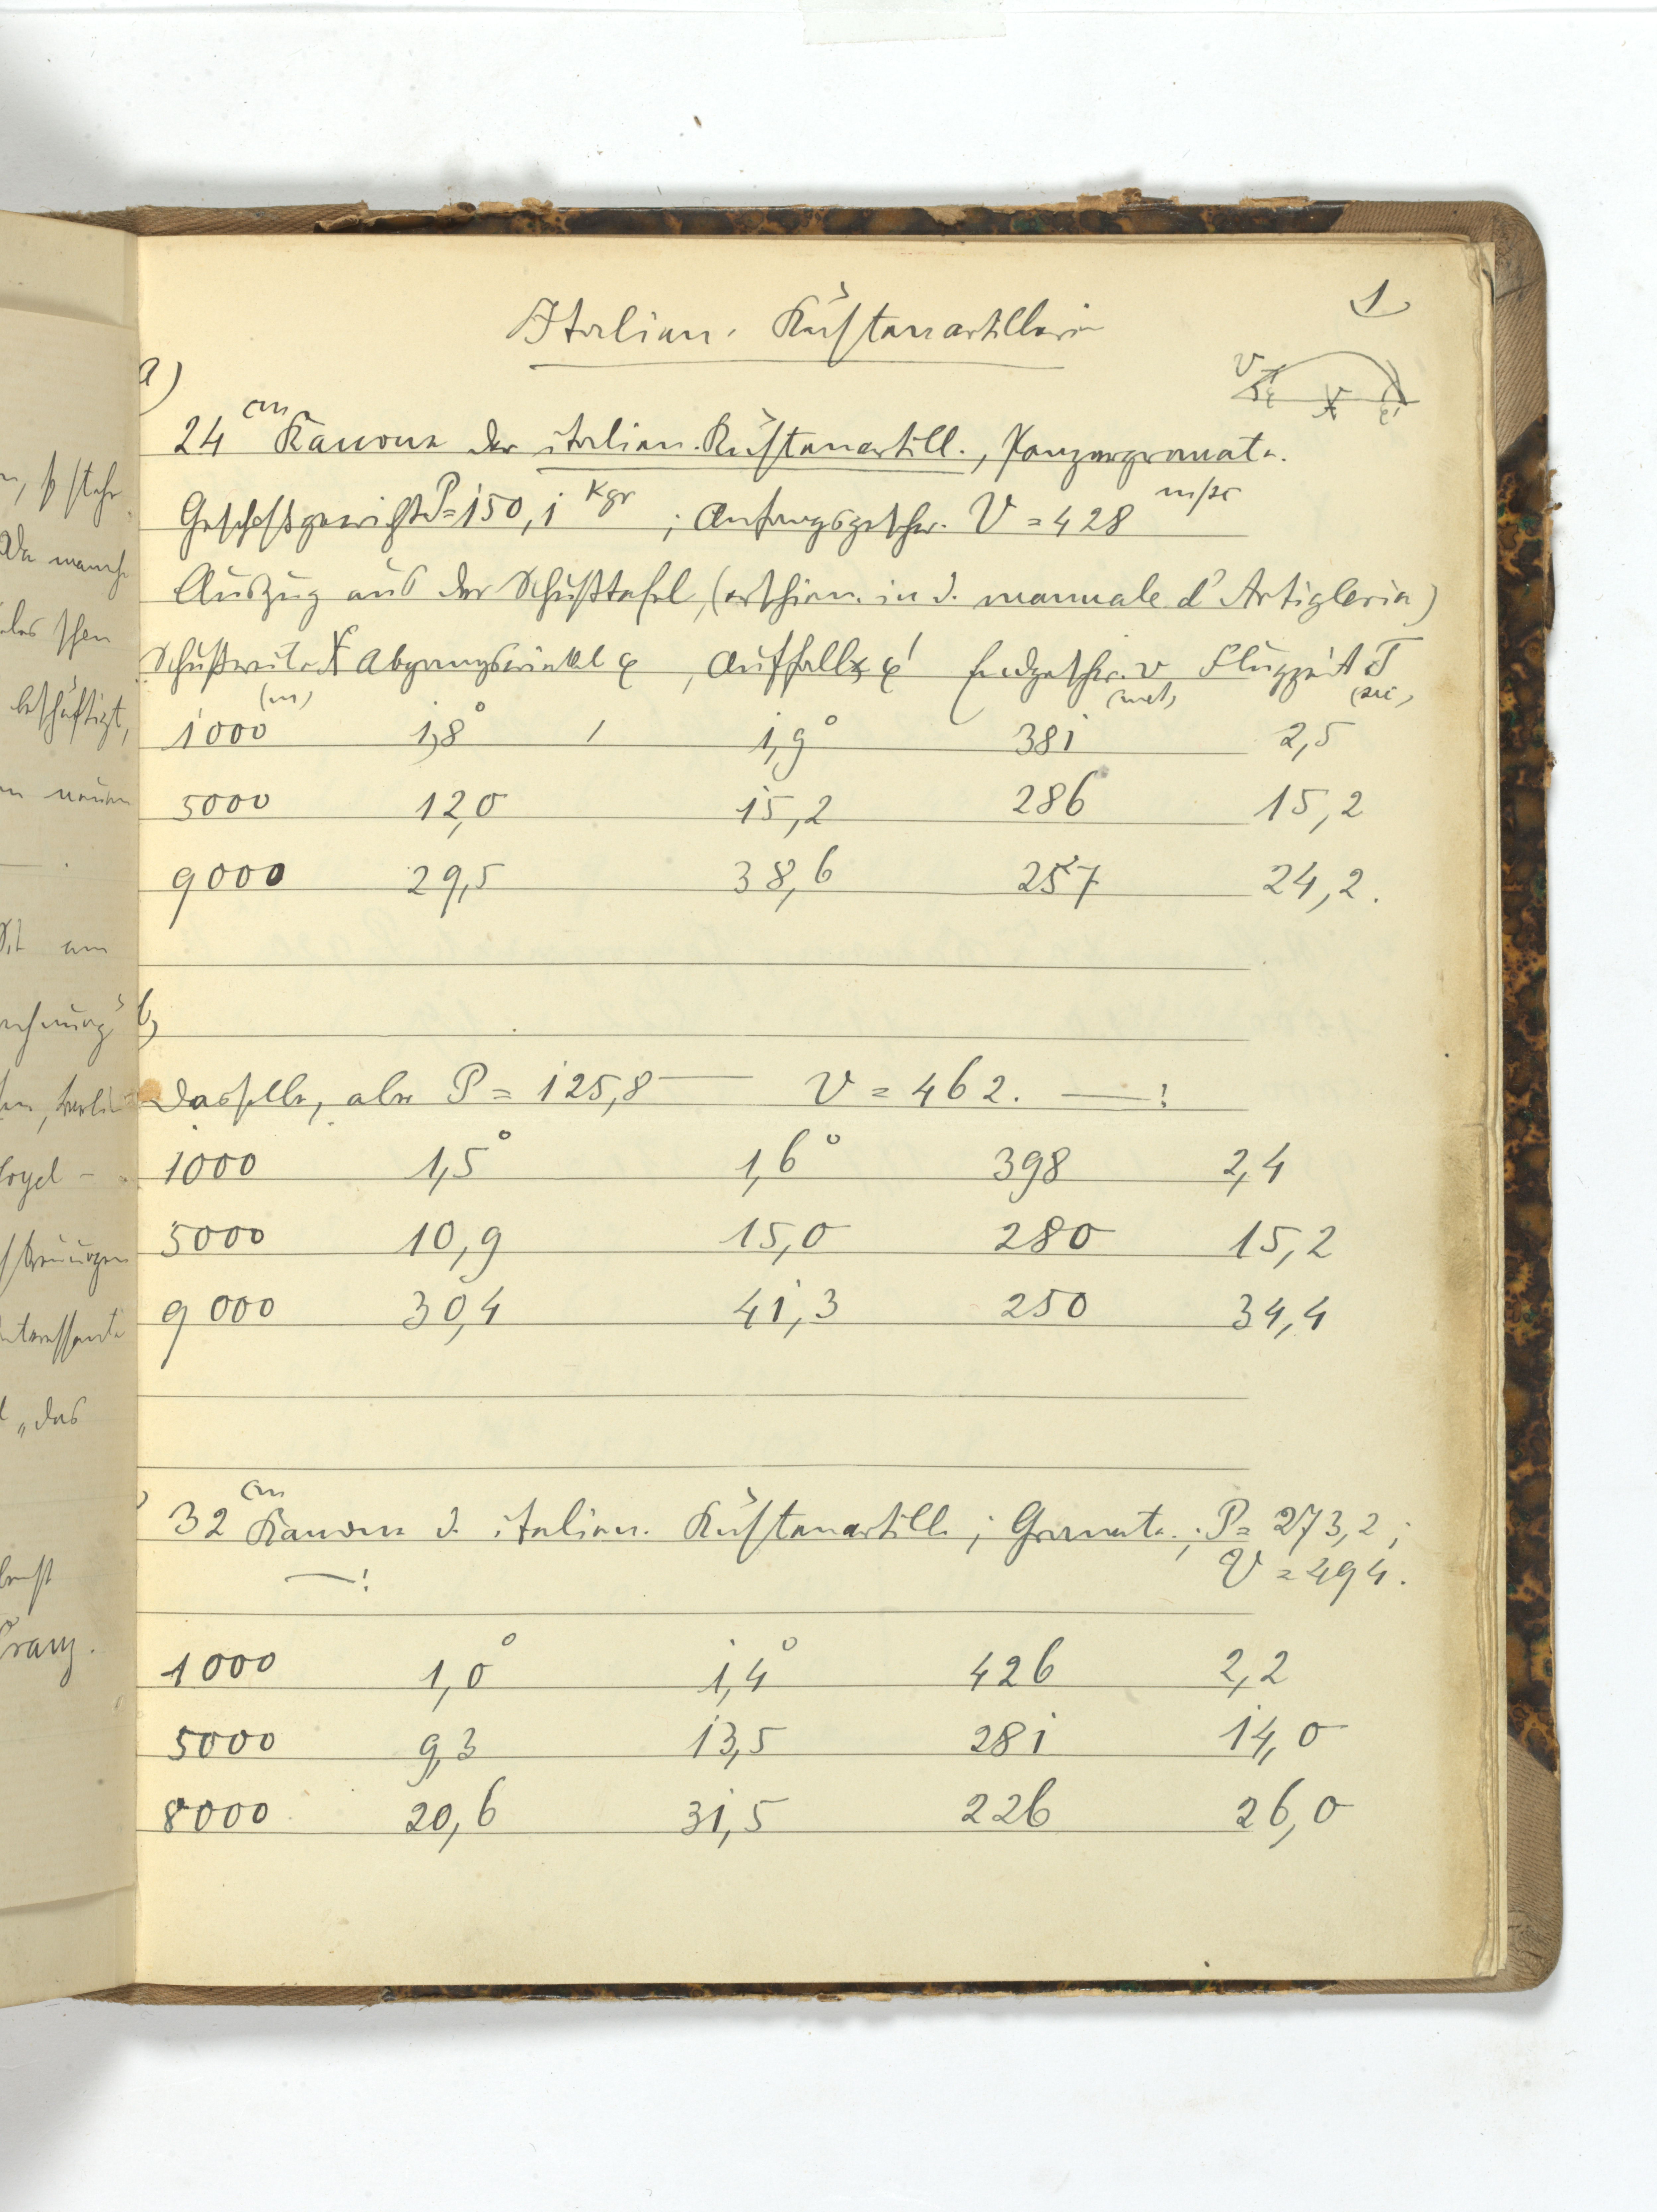 1
Italien. Küstenartillerie
a)
V φ X φ'
24 cm Kanone der italien. Küstenartill., Panzergranate.
Geschoßgewicht P = 150,1 Kgr ; Anfangsgeschw. V = 428 m/sc
Auszug aus der Schußtafel, (erschien. in d. manuale d'Artigleria)
Schußweite X (m) Abgangswinkel φ , Auffall∢ φ' Endgeschw. v (met) Flugzeit T (sec)
1000 1,8° 1,9° 381 2,5
5000 12,0 15,2 286 15,2
9000 29,5 38,6 257 24,2.
b)
Dasselbe, aber P = 125,8 — V = 462. — :
1000 1,5° 1,6° 398 2,4
5000 10,9 15,0 280 15,2
9000 30,4 41,3 250 34,4
32 cm Kanone d. italien. Küstenartill ; Granate ; P = 273,2 ;
— : V = 494.
1000 1,0° 1,4° 426 2,2
5000 9,3 13,5 281 14,0
8000 20,6 31,5 226 26,0